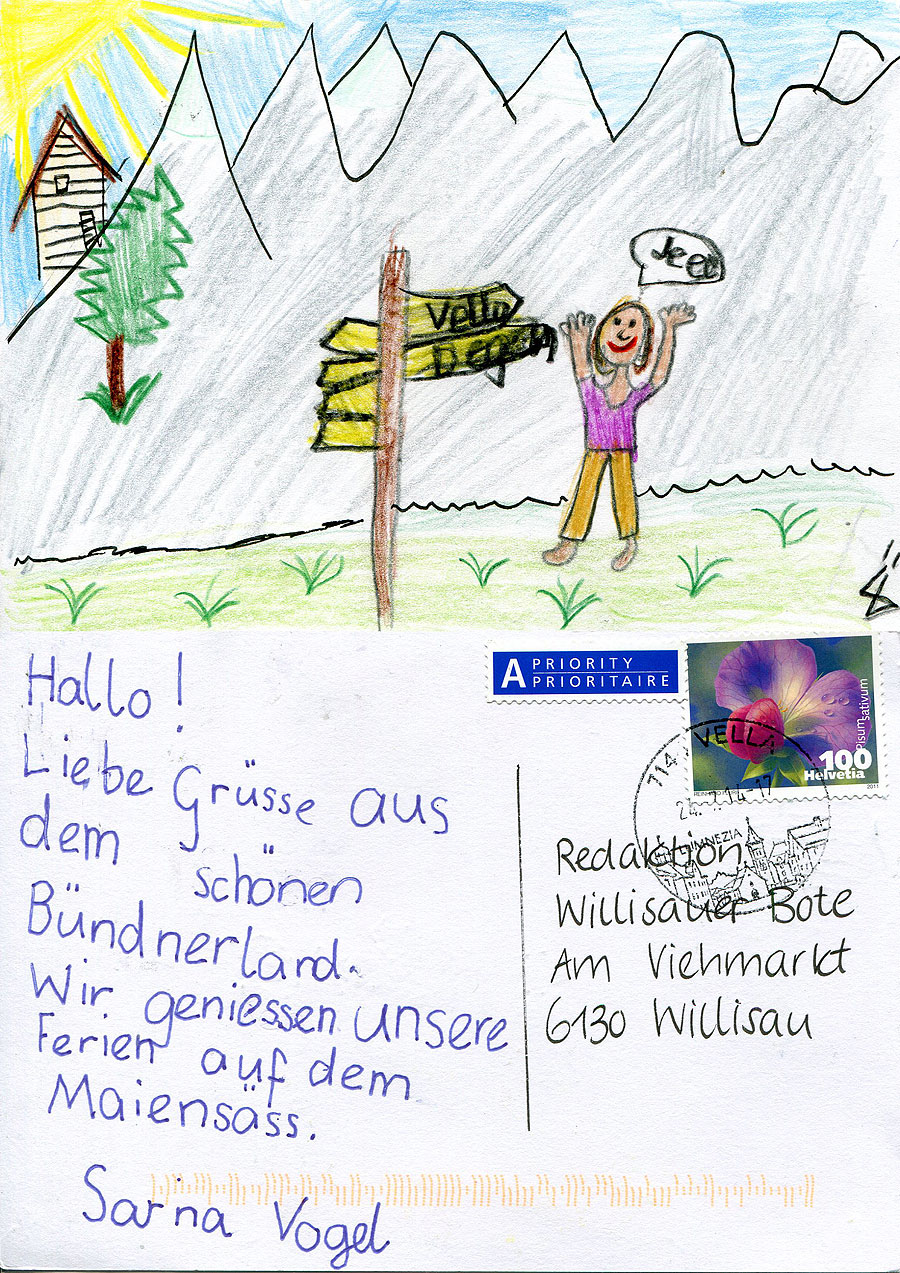 Jeee
Vella
Degen
Hallo!
Liebe Grüsse aus
dem schönen
Bündnerland.
Wir geniessen unsere
Ferien auf dem
Maiensäss.
Sarina Vogel
A PRIORITY
PRIORITAIRE
Pisum
sativum
100
Helvetia
2011
VELLA
Redaktion
Willisauer Bote
Am Viehmarkt
6130 Willisau